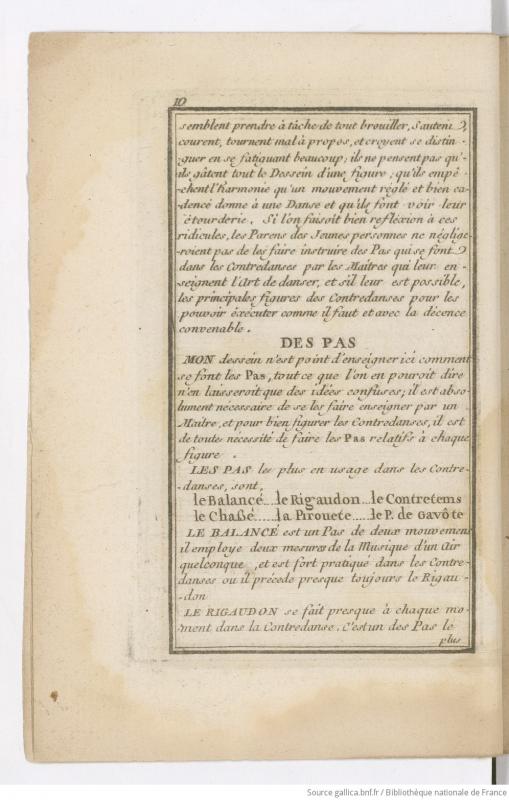 10
semblent prendre à tâche de tout brouiller, Sautent,
courent, tournent mal à propos, et croyent se distin-
-guer en se fatiguant beaucoup; ils ne pensent pas qu'-
ils gâtent tout le Dessein d'une figure; qu'ils empê-
-chent l'Harmonie qu'un mouvement réglé et bien ca-
-dencé donne à une Danse et qu'ils font voir leur
étourderie. Si l'on faisoit bien refléxion à ces
ridicules, les Parens des Jeunes personnes ne néglige-
-roient pas de les faire instruire des Pas qui se font
dans les Contredanses par les Maitres qui leur en-
-seignent l'Art de danser, et s'il leur est possible,
les principales figures des Contredanses pour les
pouvoir éxécuter comme il faut et avec la décence
convenable.
DES PAS
MON dessein n'est point d'enseigner ici comment
se font les Pas, tout ce que l'on en pouroit dire
n'en laisseroit que des idées confuses; il est abso-
lument necessaire de se les faire enseigner par un
Maitre, et pour bien figurer les Contredanses, il est
de toute nécessité de faire les Pas relatifs à chaque
figure.
LES PAS les plus en usage dans les Contre-
-danses, sont,
le Balancé....le Rigaudon...le Contretems
le Chaßé.....la Pirouete.....le P. de Gavôte
LE BALANCÉ est un Pas de deux mouvemens
il employe deux mesures de la Musique d'un Air
quelconque, et est fort pratiqué dans les Contre-
danses ou il précede presque toujours le Rigau-
-don
LE RIGAUDON se fait presque à chaque mo-
-ment dans la Contredanse. C'est un des Pas le
plus
Source gallica.bnf.fr / Bibliothèque nationale de France